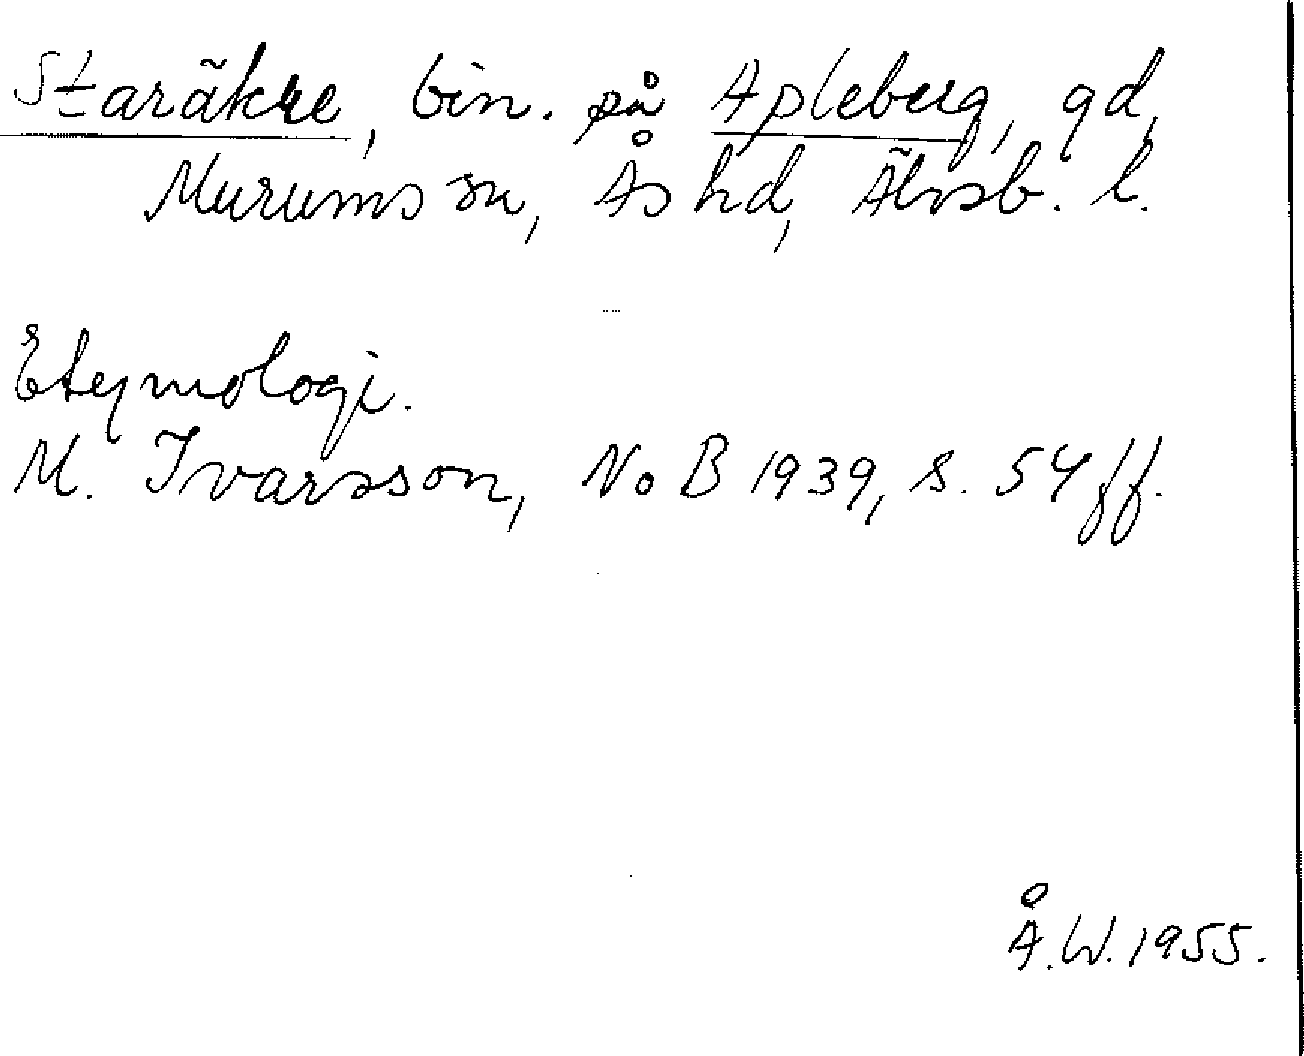 Staräkre, bin. på Apleberg, gd,
Murums sn, Ås hd, Älvsb. l.
Etymologi.
M. Ivarsson, NoB 1939, s. 54 ff.
Å.W. 1955.